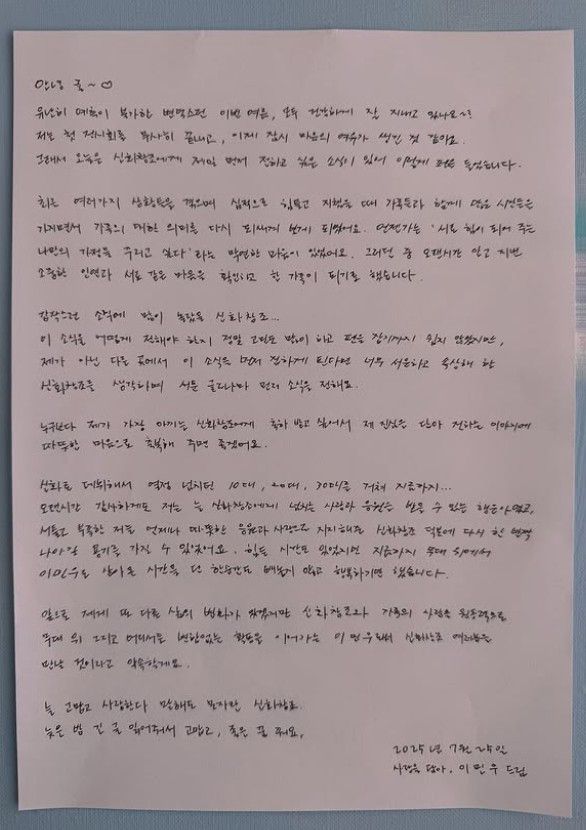 안녕 귿~♡
유난히 예측이 불가한 변덕스런 이번 여름, 모두 건강하게 잘 지내고 있나요~?
저는 첫 전시회를 무사히 끝내고, 이제 잠시 마음의 여유가 생긴 것 같아요.
그래서 오늘은 신화창조에게 제일 먼저 전하고 싶은 소식이 있어 이렇게 펜을 들었습니다.
최근 여러가지 상황들을 겪으며 심적으로 힘들고 지쳤을 때 가족들과 함께 많은 시간들을
가지면서 가족의 대한 의미를 다시 되새기게 되었어요. 언젠가는 '서로 힘이 되어 주는
나만의 가정을 꾸리고 싶다'라는 막연한 마음이 있었어요. 그러던 중 오랜시간 알고 지낸
소중한 인연과 서로 같은 마음을 확인하고 한 가족이 되기로 했습니다.
갑작스런 소식에 많이 놀랐을 신화창조...
이 소식을 어떻게 전해야 하지 정말 고민도 많이 하고 펜을 잡기까지 쉽지 않았지만,
제가 아닌 다른 곳에서 이 소식을 먼저 전하게 된다면 너무 서운하고 속상해 할
신화창조를 생각하며 서툰 글로나마 먼저 소식을 전해요.
누구보다 제가 가장 아끼는 신화창조에게 축하 받고 싶어서 제 진심을 담아 전하는 이야기에
따뜻한 마음으로 축복해 주면 좋겠어요.
신화로 데뷔해서 열정 넘치던 10대, 20대, 30대를 거쳐 지금까지...
오랜시간 감사하게도 저는 늘 신화창조에게 넘치는 사랑과 응원을 받을 수 있는 행운아였고,
서툴고 부족한 저를 언제나 따뜻한 응원과 사랑으로 지지해준 신화창조 덕분에 다시 한 번
나아갈 용기를 가질 수 있었어요. 힘든 시간도 있었지만 지금까지 무대 위에서
이민우로 살아온 시간을 단 한순간도 빼놓지 않고 행복하기만 했습니다.
앞으로 제게 또 다른 삶의 변화가 있겠지만 신화창조와 가족의 사랑을 원동력으로
무대 위 그리고 어디서든 변함없는 활동을 이어가는 이민우로 신화창조 여러분을
만날 것이라고 약속할게요.
늘 고맙고 사랑한다 말해도 모자란 신화창조.
늦은 밤 긴 글 읽어줘서 고맙고, 좋은 꿈 꿔요,
2025년 7월 25일
사랑을 담아. 이민우 드림